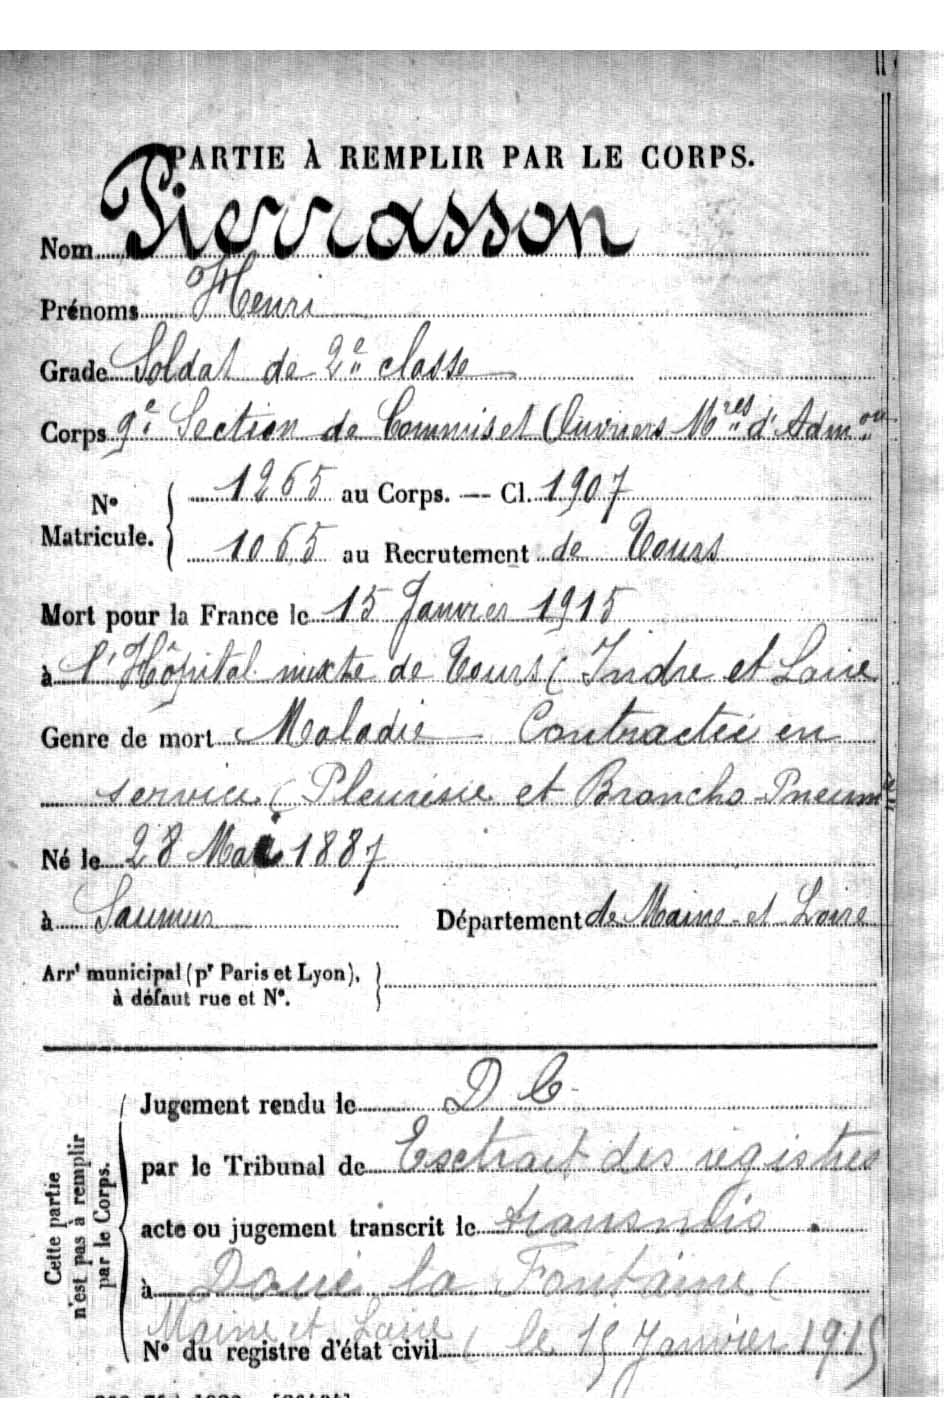 PARTIE À REMPLIR PAR LE CORPS.
Nom Pierrasson
Prénoms Henri
Grade Soldat de 2e classe
Corps 9e Section de Commis et Ouvriers Mres d'Admon
No Matricule. 1265 au Corps. — Cl. 1907
1065 au Recrutement de Tours
Mort pour la France le 15 Janvier 1915
à l'Hôpital mixte de Tours (Indre et Loire
Genre de mort Maladie Contractée en
service (Pleurésie et Broncho-Pneumie
Né le 28 Mai 1887
à Saumur Département de Maine-et Loire
Arrt municipal (pr Paris et Lyon),
à défaut rue et No.
Cette partie
n'est pas à remplir
par le Corps.
Jugement rendu le D C
par le Tribunal de Esctrait des registres
acte ou jugement transcrit le transmis.
à Doué la Fontaine (
Maine et Loire
No du registre d'état civil (le 15 Janvier 1915